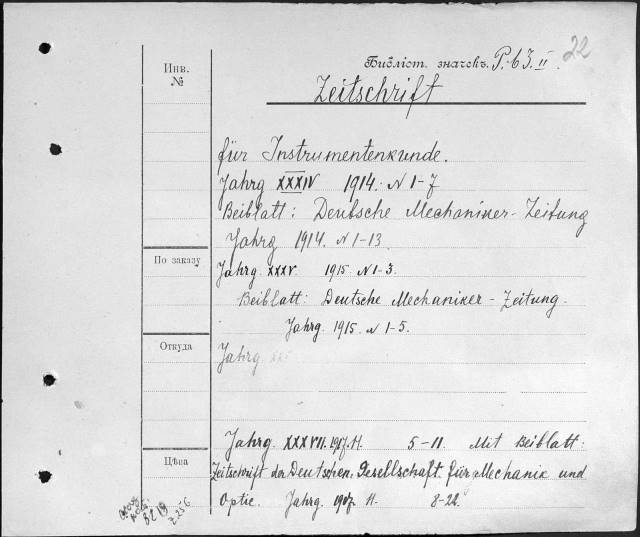 Инв.
№
Библіот. значекъ. P. 63 II.
22
Zeitschrift
für Instrumentenkunde.
Jahrg XXXIV 1914. N 1-7
Beiblatt: Deutsche Mechaniker-Zeitung
Jahrg 1914. N 1-13.
По заказу
Jahrg. XXXV. 1915 N 1-3.
Beiblatt: Deutsche Mechaniker-Zeitung.
Jahrg. 1915. N 1-5.
Откуда
Jahrg.
Jahrg. XXXVII. 1917. H. 5-11. Mit Beiblatt:
Цѣна
Zeitschrift der Deutschen Gesellschaft für Mechanik und
Optic. Jahrg. 1917. H. 8-22.